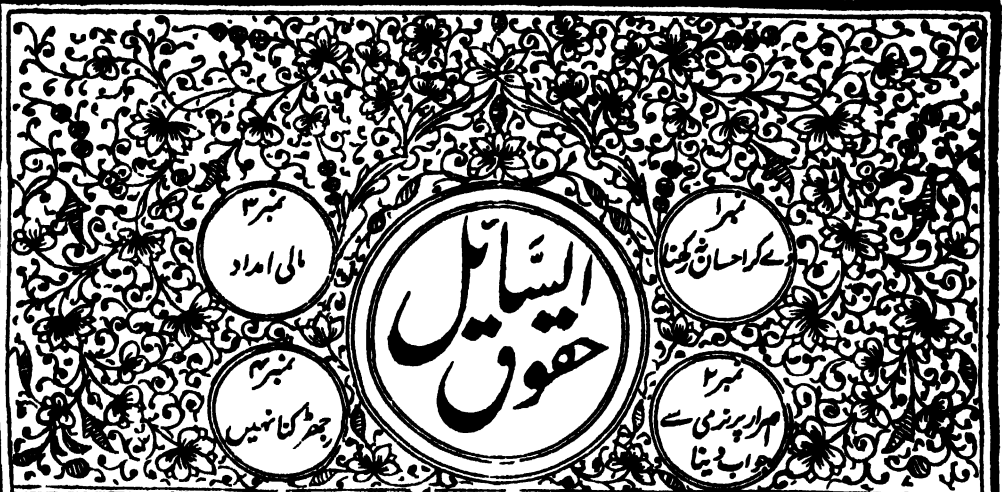 حقوق السّائل
نمبر۱
دے کر احسان نہ رکھنا
نمبر۲
اصرار پر نرمی سے
جواب دینا
نمبر۳
مالی امداد
نمبر۴
جھڑکنا نہیں